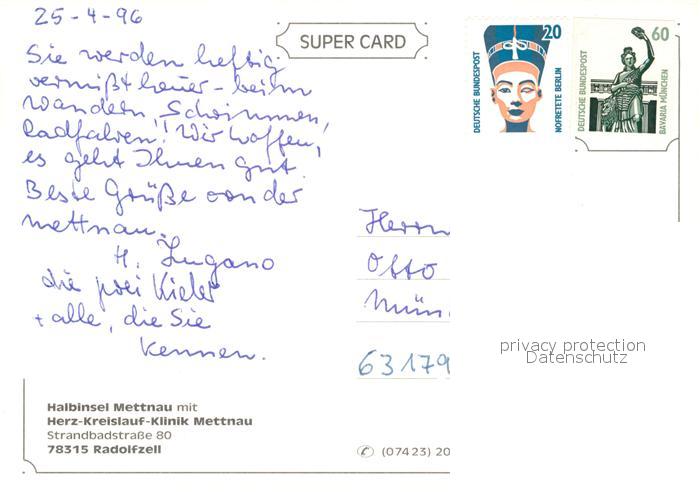 25-4-96
SUPER CARD
20
DEUTSCHE BUNDESPOST
NOFRETETE BERLIN
60
DEUTSCHE BUNDESPOST
BAVARIA MÜNCHEN
Sie werden heftig
vermißt heuer - beim
Wandern, Schwimmen,
Radfahren! Wir hoffen,
es geht Ihnen gut!
Beste Grüße von der
Mettnau.
H. Lugano
die zwei Kieler
+ alle, die Sie
kennen.
Herrn
Otto
Mün
63179
privacy protection
Datenschutz
Halbinsel Mettnau mit
Herz-Kreislauf-Klinik Mettnau
Strandbadstraße 80
78315 Radolfzell
✆ (07423) 20